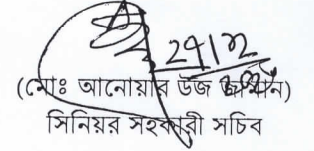 (মোঃ আনোয়ার উজ জামান)
সিনিয়র সহকারী সচিব